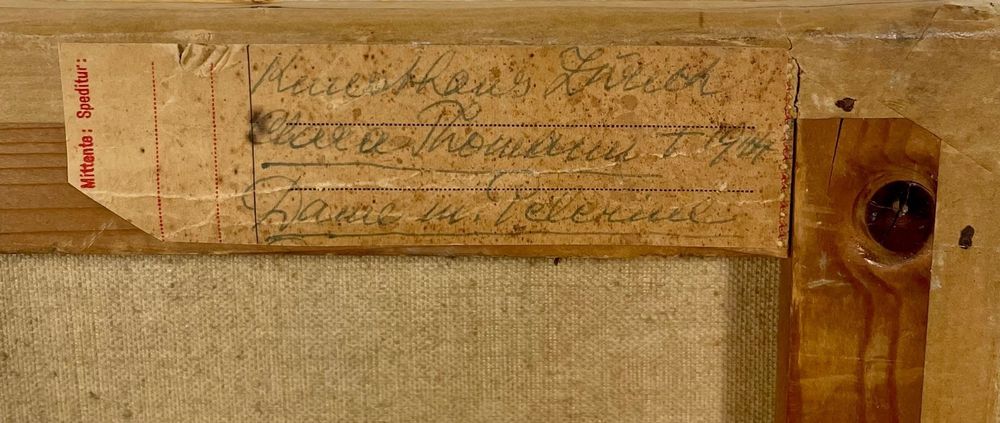 Mittente: Speditur:
Kunsthaus Zürich
Thomann I 1944
Dame m. Pelerine